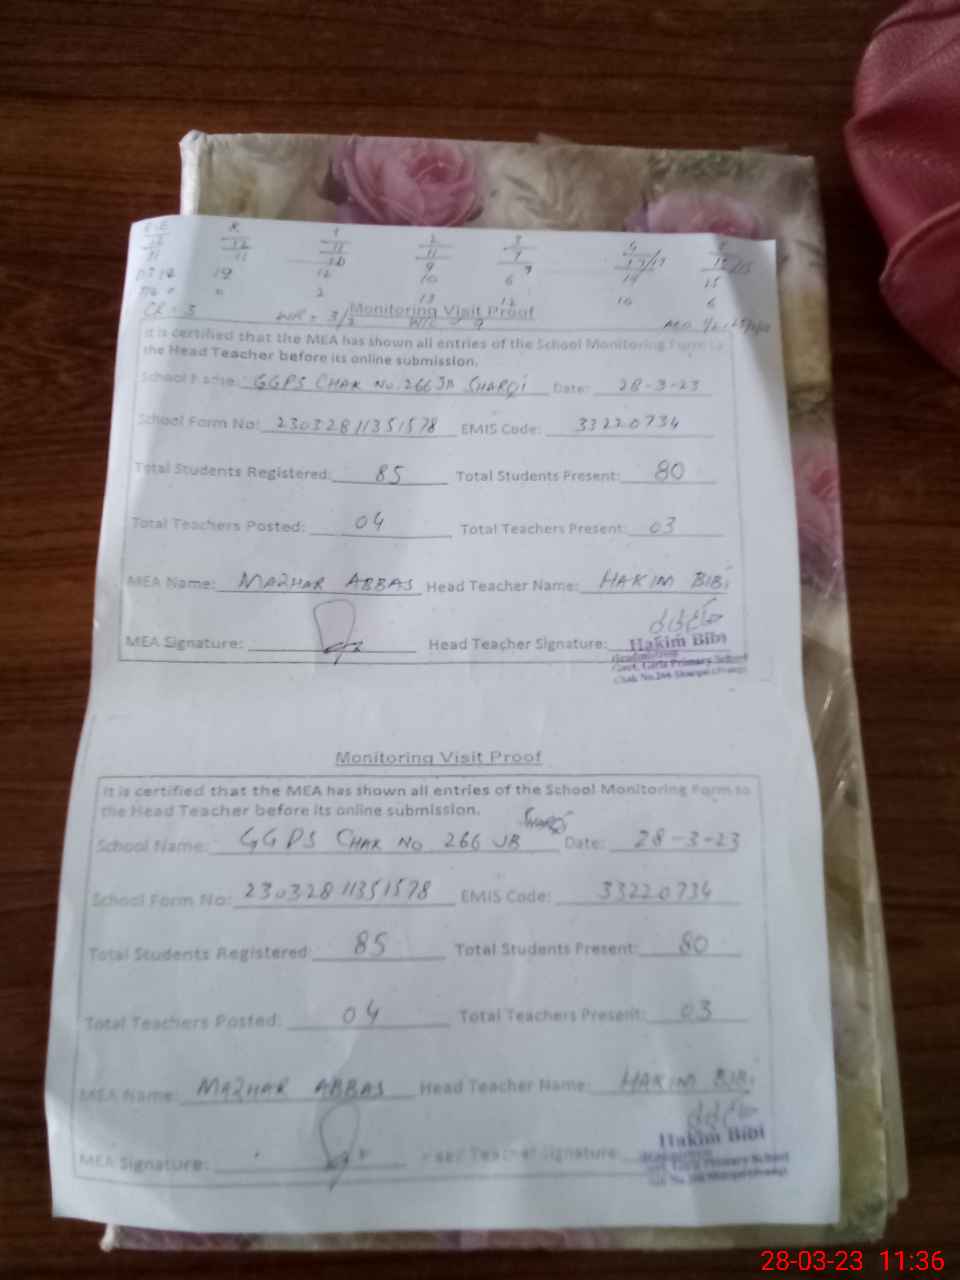 Monitoring Visit Proof
It is certified that the MEA has shown all entries of the School Monitoring Form to
the Head Teacher before its online submission.
School Name: GGPS CHAK No. 266 JB SHARQI Date: 28-3-23
School Form No: 23032811351578 EMIS Code: 33220734
Total Students Registered: 85 Total Students Present: 80
Total Teachers Posted: 04 Total Teachers Present: 03
MEA Name: MAZHAR ABBAS Head Teacher Name: HAKIM BIBI
MEA Signature: Head Teacher Signature:
Hakim Bibi
Headmistress
Govt. Girls Primary School
Chak No.266
Monitoring Visit Proof
It is certified that the MEA has shown all entries of the School Monitoring Form to
the Head Teacher before its online submission.
School Name: GGPS CHAK No 266 JB SHARQI Date: 28-3-23
School Form No: 23032811351578 EMIS Code: 33220734
Total Students Registered: 85 Total Students Present: 80
Total Teachers Posted: 04 Total Teachers Present: 03
MEA Name: MAZHAR ABBAS Head Teacher Name: HAKIM BIBI
MEA Signature: Teacher Signature:
Hakim Bibi
Govt. Girls Primary School
28-03-23 11:36